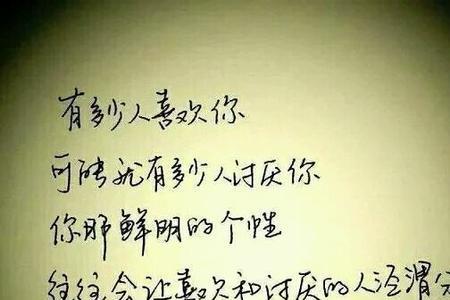 有多少人喜欢你
可能就有多少人讨厌你
你那鲜明的个性
往往会让喜欢和讨厌的人泾渭分